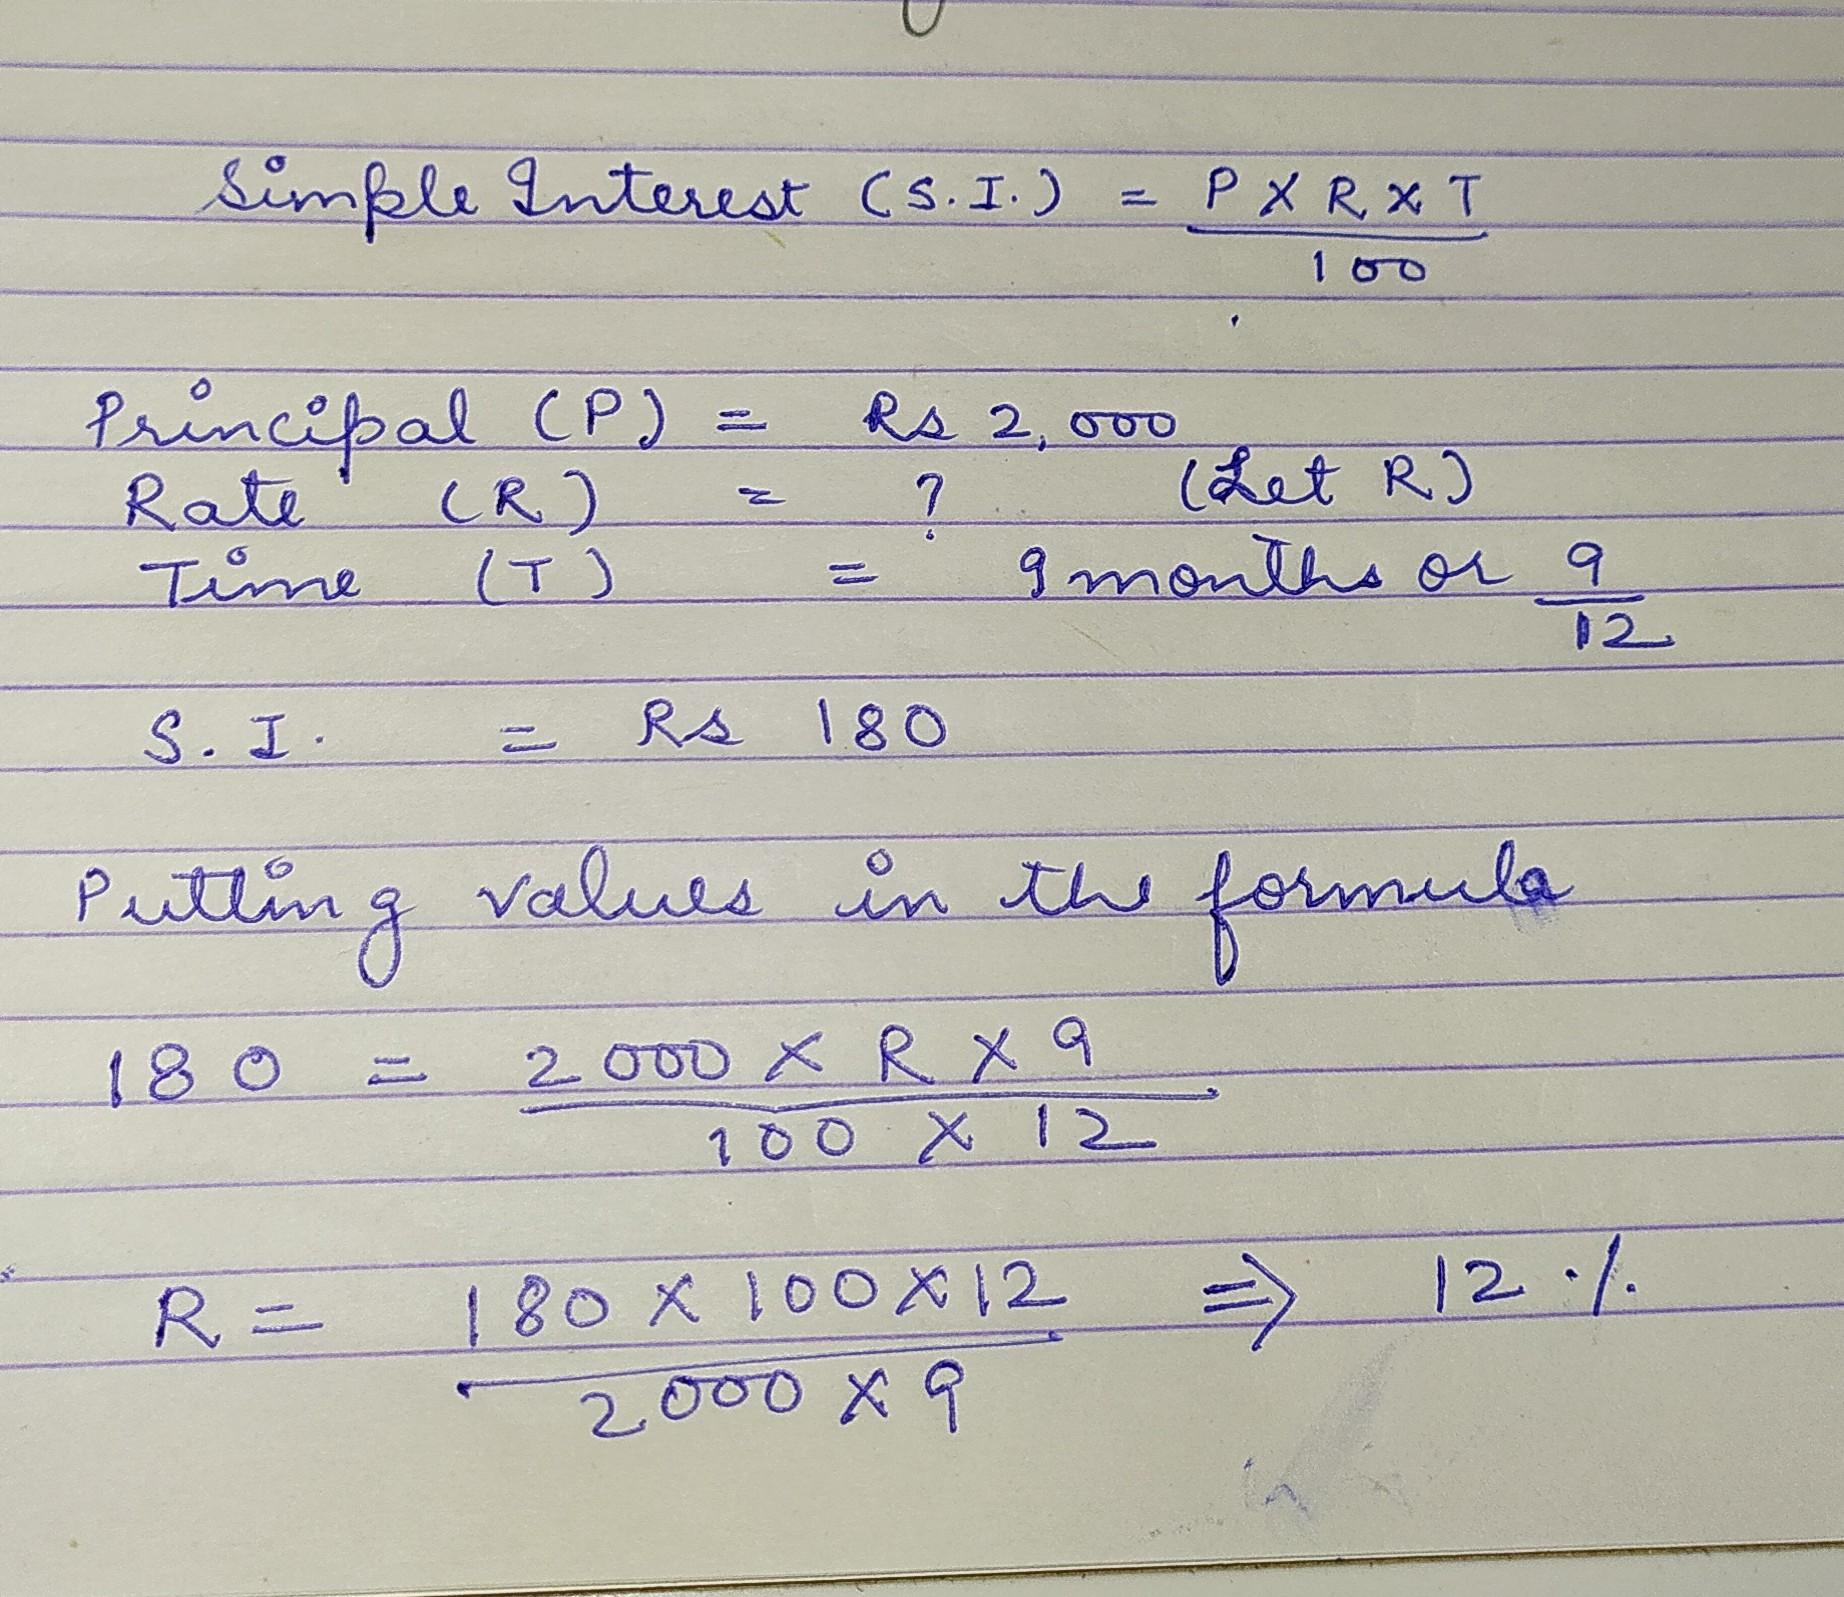 Simple Interest (S.I.) = P X R X T
100
Principal (P) = Rs 2,000
Rate (R) = ? (Let R)
Time (T) = 9 months or 9
12
S.I. = Rs 180
Putting values in the formula
180 = 2000 X R X 9
100 X 12
R = 180 X 100 X 12 ⇒ 12 %
2000 X 9